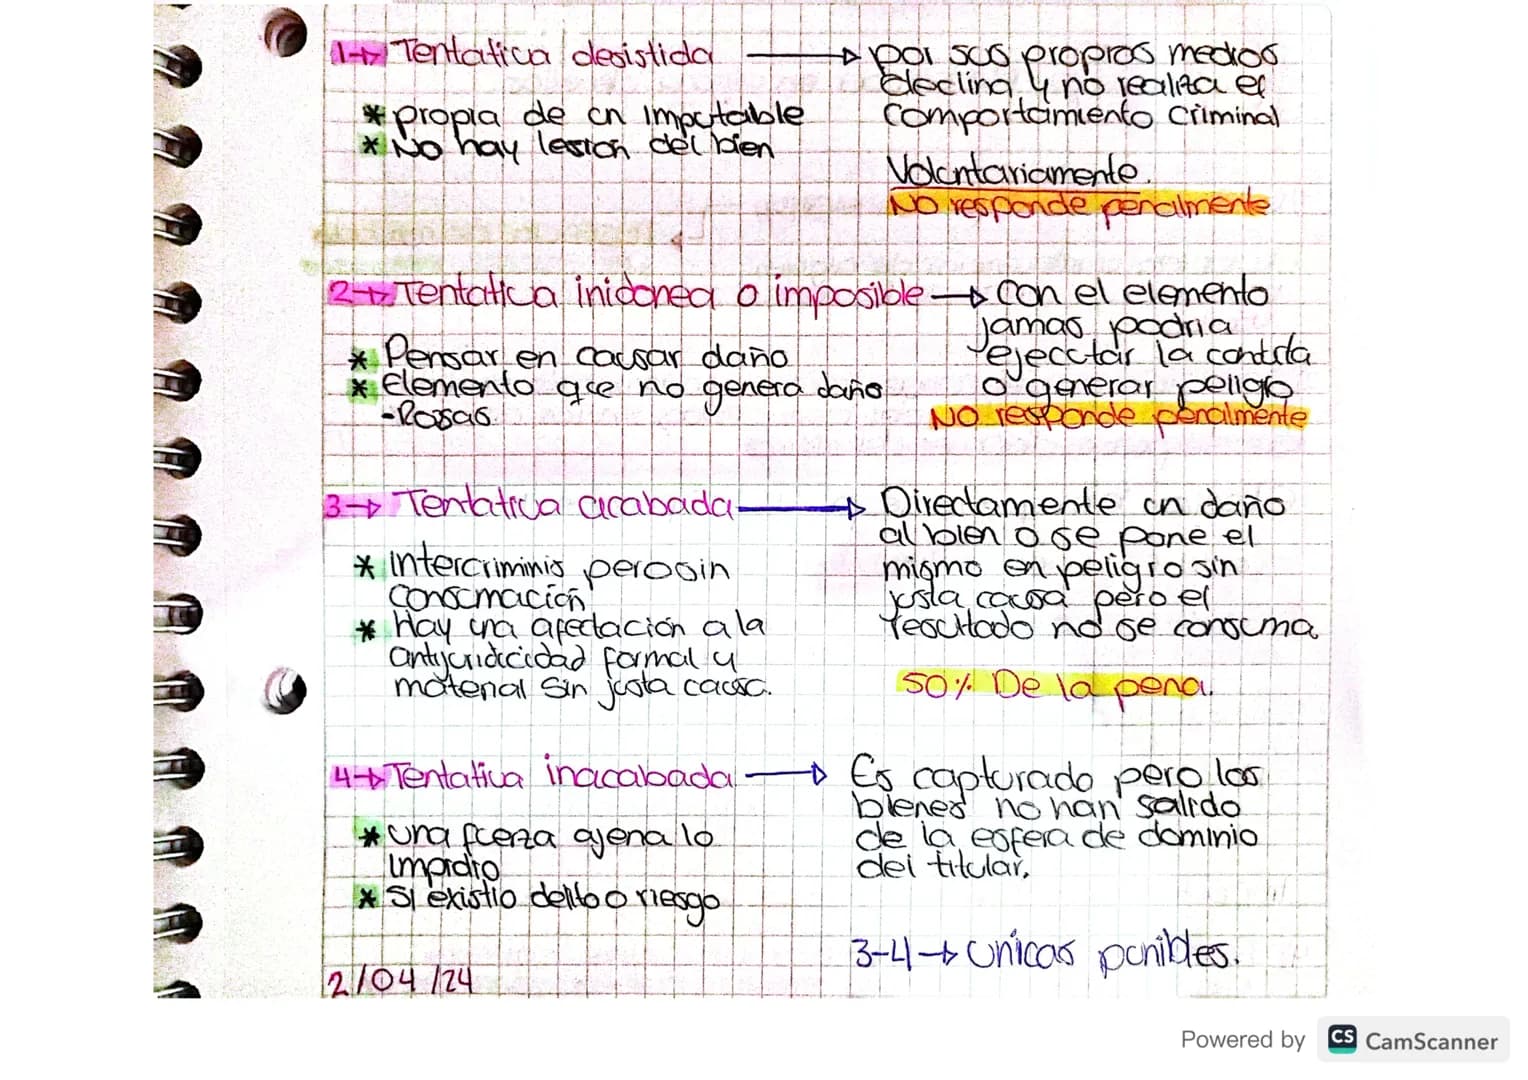 1→ Tentativa desistida → por sus propios medios
declina y no realiza el
* propia de un imputable comportamiento criminal
* No hay lesión del bien
Voluntariamente.
No responde penalmente
2→ Tentativa inidonea o imposible → Con el elemento
jamas podria
* Pensar en causar daño ejecutar la conducta
* Elemento que no genera daño o generar peligro
-Rosas. NO responde penalmente
3→ Tentativa acabada → Directamente un daño
al bien o se pone el
* Intercriminis pero sin mismo en peligro sin
consumación justa causa pero el
* Hay una afectación a la resultado no se consuma.
antijuridicidad formal y
material sin justa causa. 50% De la pena.
4→ Tentativa inacabada → Es capturado pero los
bienes no han salido
* una fuerza ajena lo de la esfera de dominio
impidio del titular.
* Si existio delito o riesgo
3-4→ Unicas punibles.
2/04/24
Powered by CS CamScanner